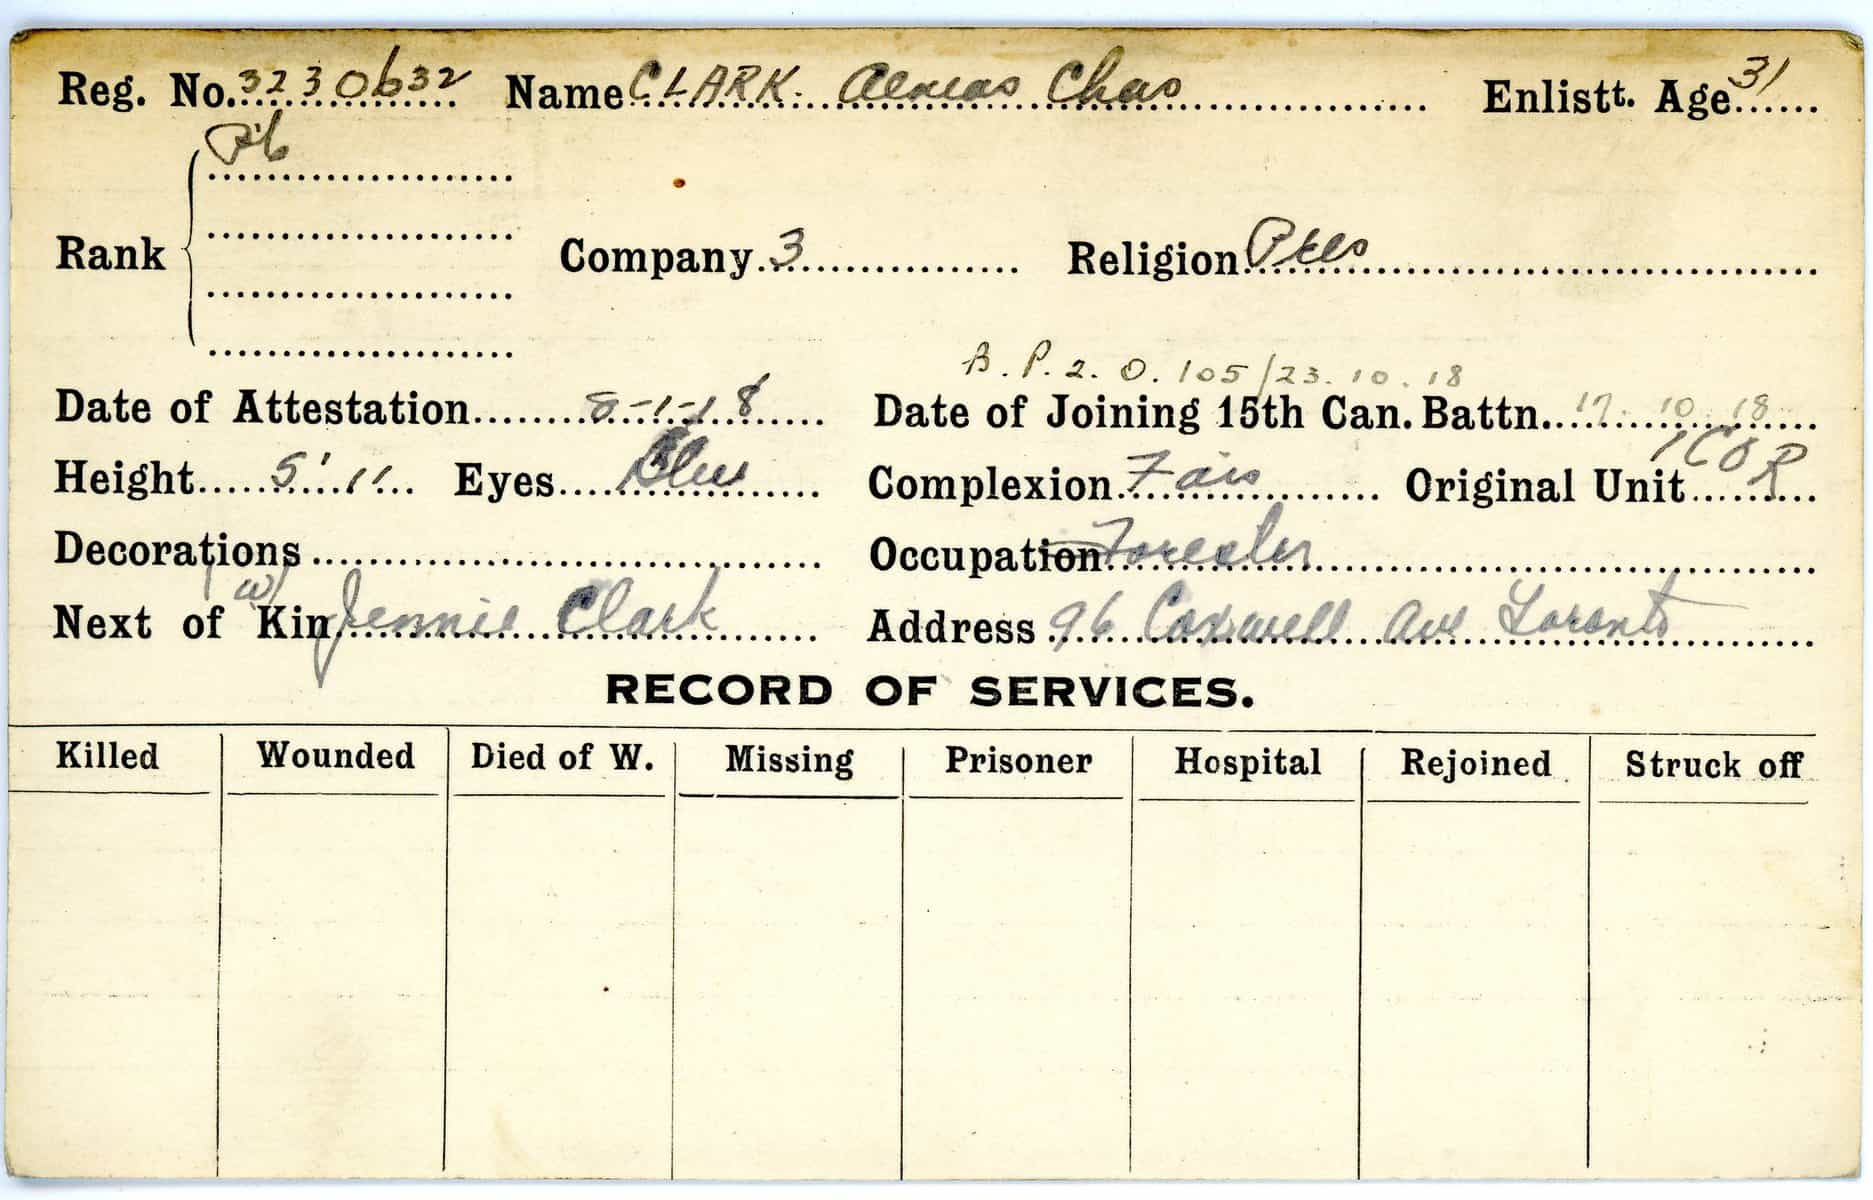 Reg. No. 3230632 Name CLARK. Aeneas Chas Enlistt. Age 31
Pte
Rank Company 3 Religion Pres
B. P. 2. O. 105/23.10.18
Date of Attestation 8-1-18 Date of Joining 15th Can. Battn. 17.10.18
Height 5'.11 Eyes Blue Complexion Fair Original Unit 1 COR
Decorations Occupation Forester
(w)
Next of Kin Jennie Clark Address 96 Coxwell Ave Toronto
RECORD OF SERVICES.
Killed Wounded Died of W. Missing Prisoner Hospital Rejoined Struck off